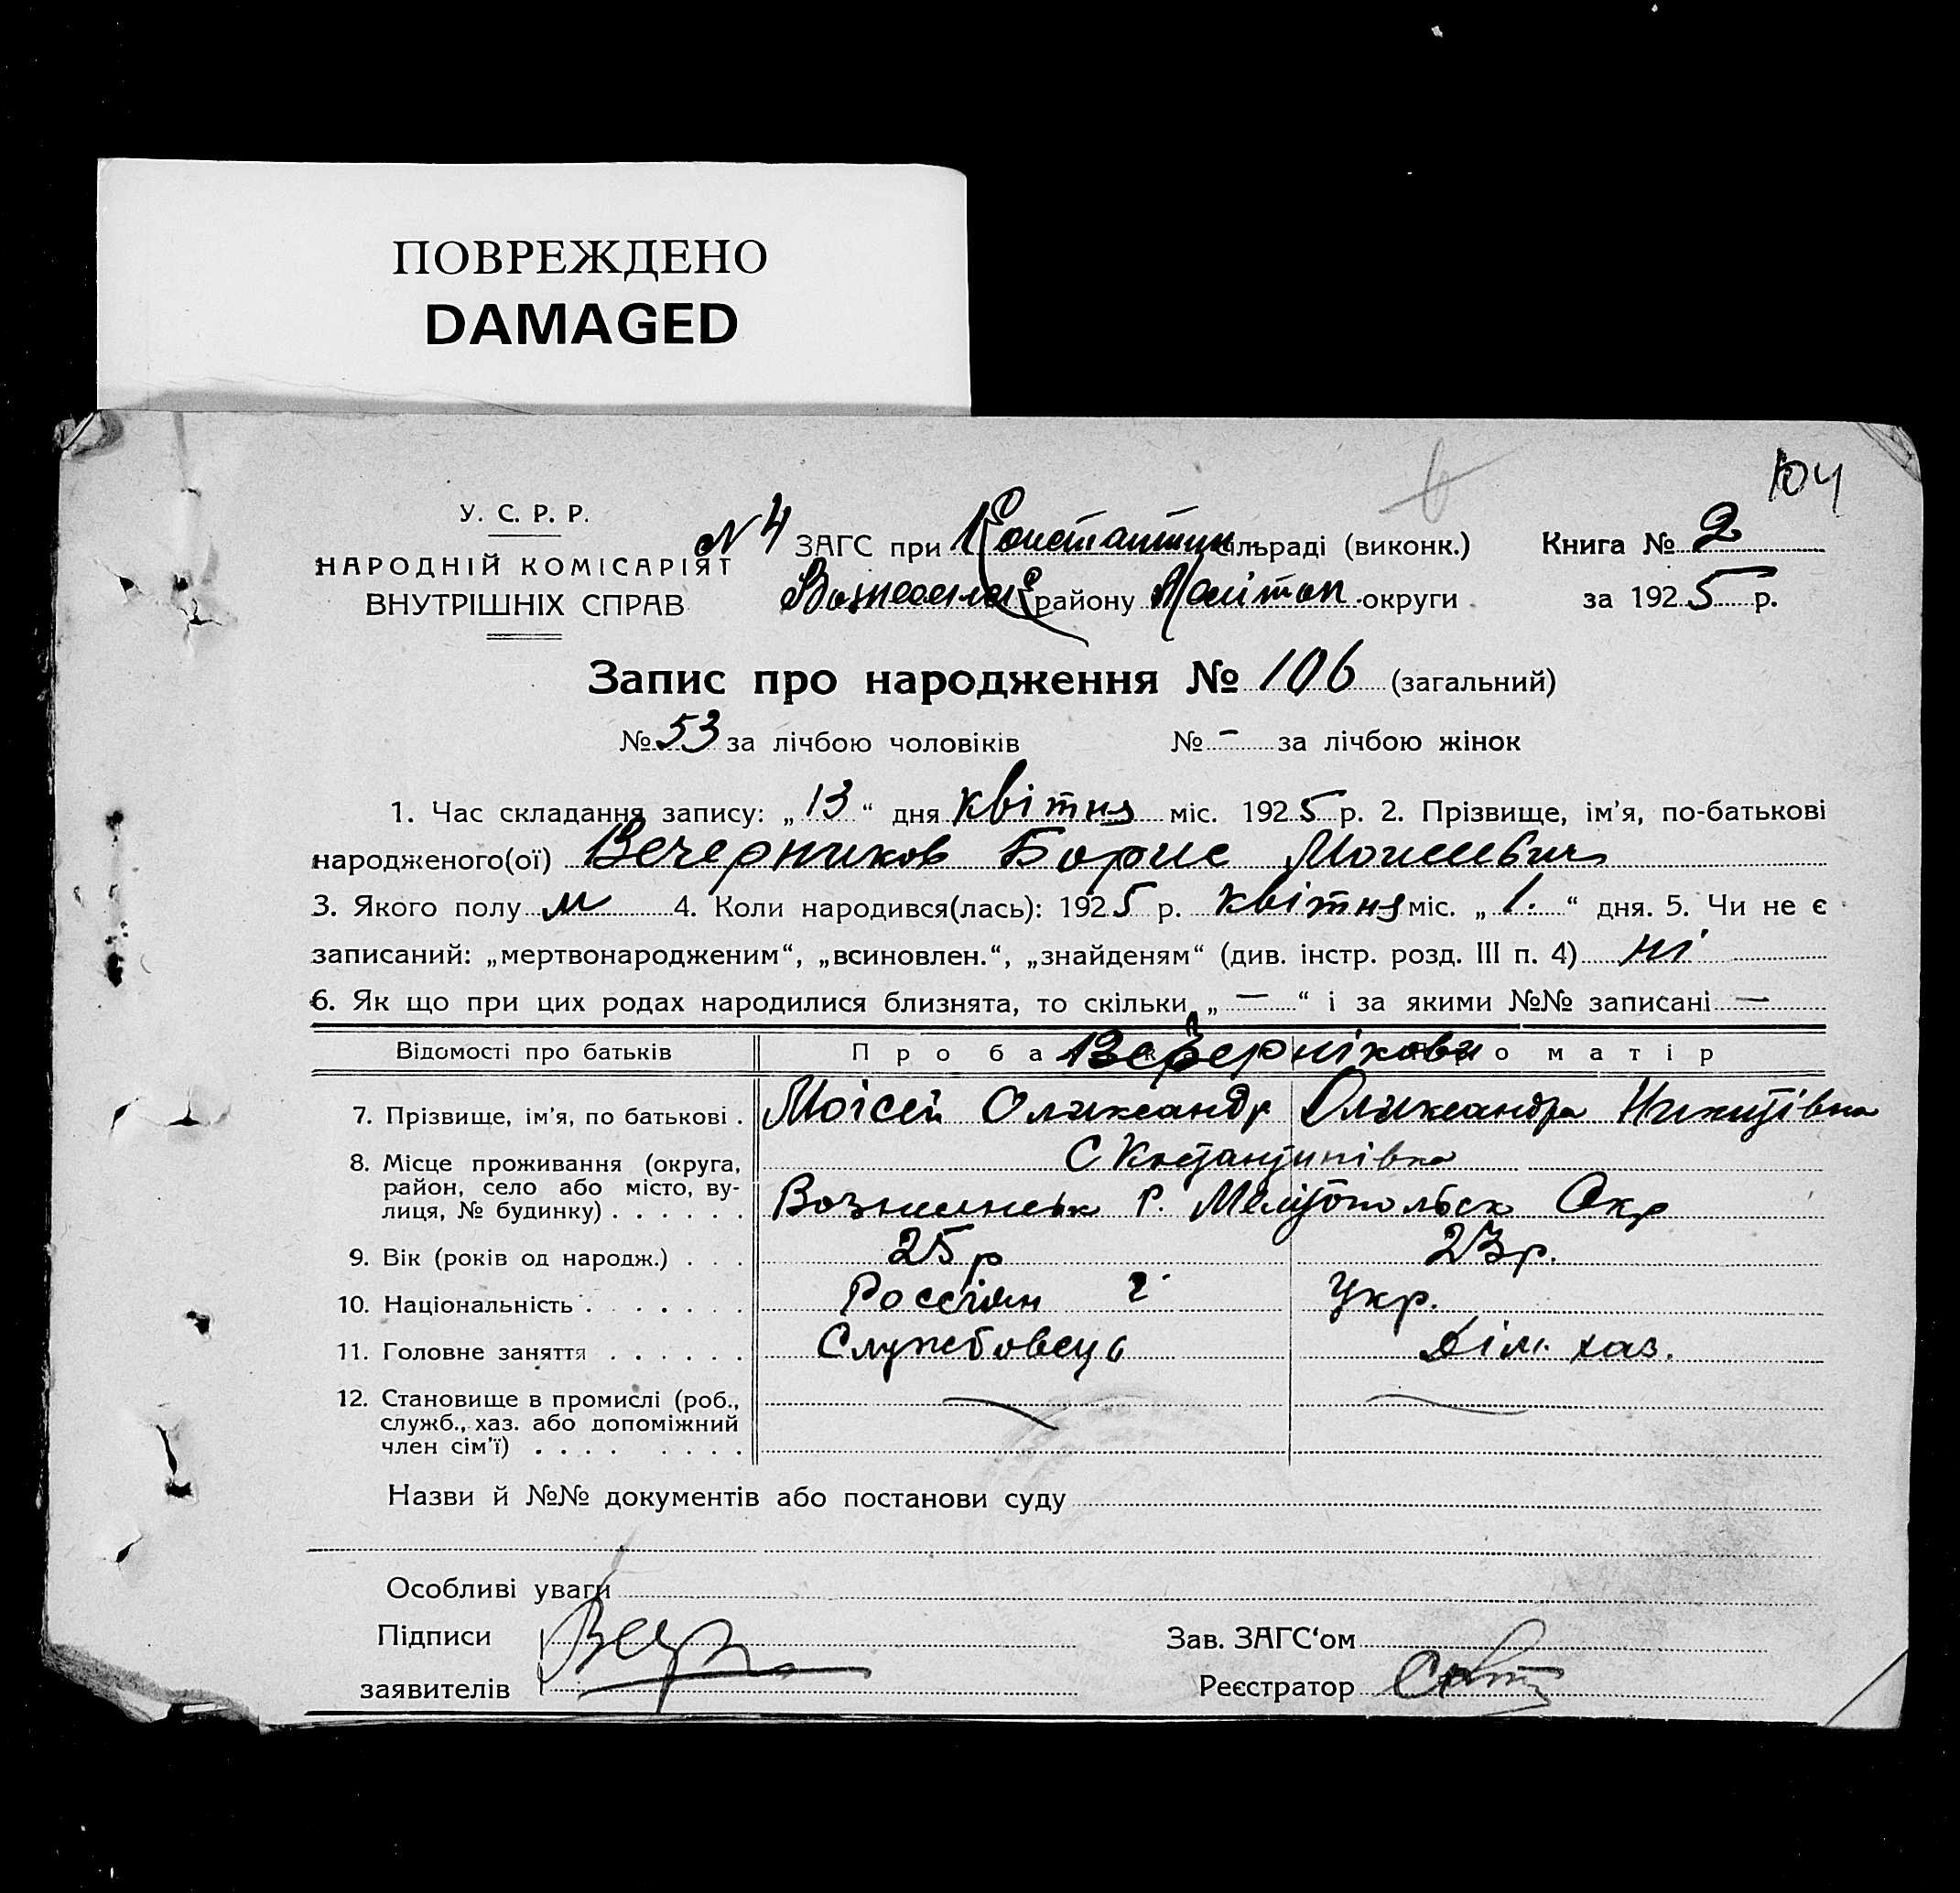 ПОВРЕЖДЕНО
DAMAGED
104
У. С. Р. Р.
НАРОДНІЙ КОМІСАРІЯТ
ВНУТРІШНІХ СПРАВ
N 4 ЗАГС при Константин сільраді (виконк.) Книга № 2
району Мелітоп округи за 1925 р.
Запис про народження № 106 (загальний)
№ 53 за лічбою чоловіків № - за лічбою жінок
1. Час складання запису: „13“ дня квітня міс. 1925 р. 2. Прізвище, ім'я, по-батькові
народженого(ої) Вечерников Борис Моисеевич
3. Якого полу м 4. Коли народився(лась): 1925 р. квітня міс. „1.“ дня. 5. Чи не є
записаний: „мертвонародженим“, „всиновлен.“, „знайденям“ (див. інстр. розд. III п. 4) ні
6. Як що при цих родах народилися близнята, то скільки „—“ і за якими №№ записані —
Відомості про батьків Про батька Про матір
Вечернікови
7. Прізвище, ім'я, по батькові . Моісей Олександр Олександра Никитівна
8. Місце проживання (округа, район, село або місто, вулиця, № будинку) . . . . . . С Костянтинівка
Вознесенськ Р. Мелітопольск Окр
9. Вік (років од народж.) . . . 25 р 23 р.
10. Національність . . . . . . . Россіян Укр.
11. Головне заняття . . . . . . Службовець Дім. хаз.
12. Становище в промислі (роб., служб., хаз. або допоміжний член сім'ї) . . . . . . . .
Назви й №№ документів або постанови суду
Особливі уваги
Підписи
заявителів
Зав. ЗАГС‘ом
Реєстратор